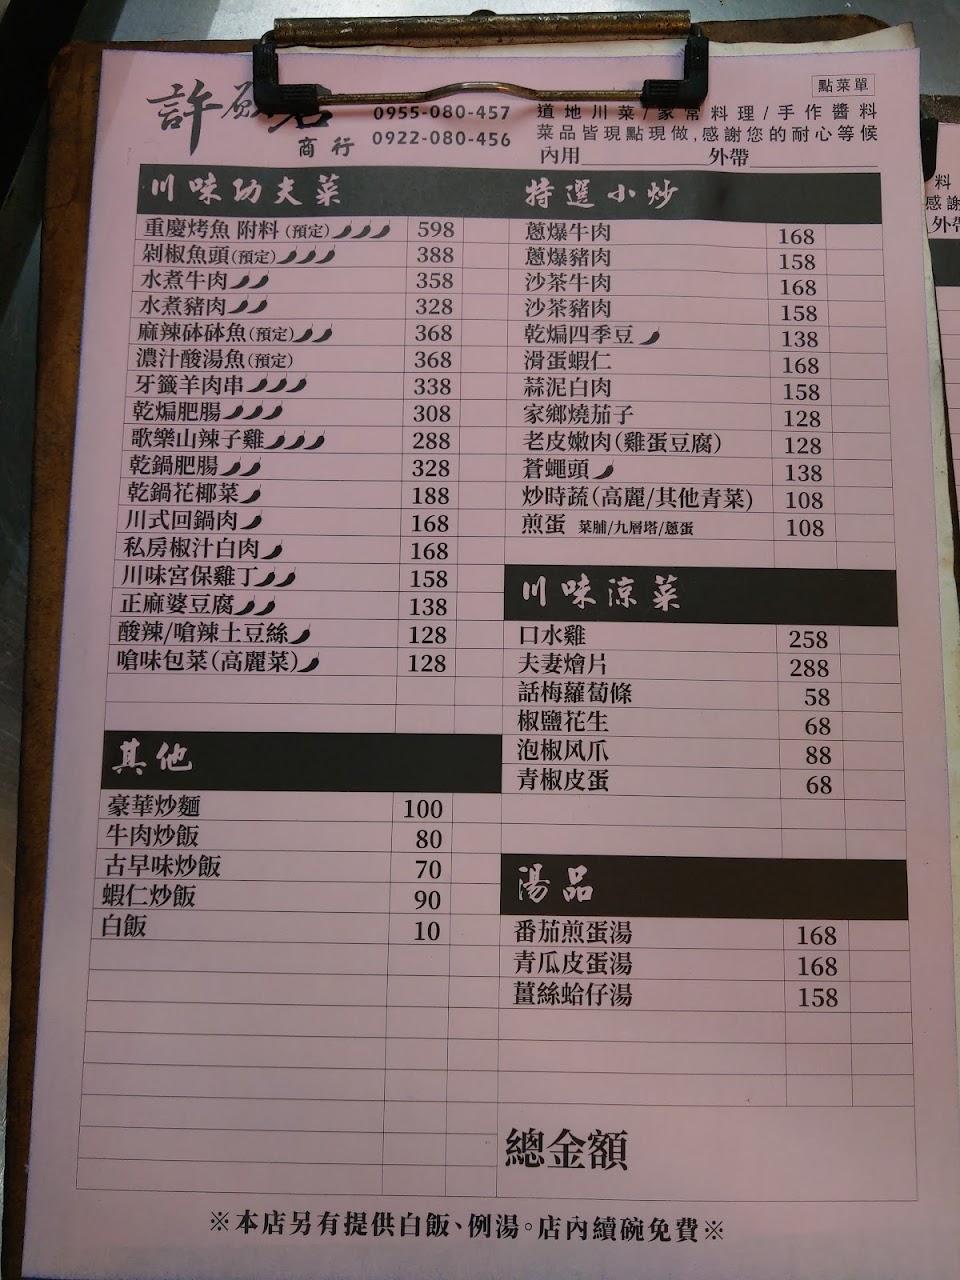 點菜單
許
商行
0955-080-457
0922-080-456
道地川菜/家常料理/手作醬料
菜品皆現點現做,感謝您的耐心等候
內用 外帶
川味功夫菜
重慶烤魚 附料(預定) 598
剁椒魚頭(預定) 388
水煮牛肉 358
水煮豬肉 328
麻辣砵砵魚(預定) 368
濃汁酸湯魚(預定) 368
牙籤羊肉串 338
乾煸肥腸 308
歌樂山辣子雞 288
乾鍋肥腸 328
乾鍋花椰菜 188
川式回鍋肉 168
私房椒汁白肉 168
川味宮保雞丁 158
正麻婆豆腐 138
酸辣/嗆辣土豆絲 128
嗆味包菜(高麗菜) 128
其他
豪華炒麵 100
牛肉炒飯 80
古早味炒飯 70
蝦仁炒飯 90
白飯 10
特選小炒
蔥爆牛肉 168
蔥爆豬肉 158
沙茶牛肉 168
沙茶豬肉 158
乾煸四季豆 138
滑蛋蝦仁 168
蒜泥白肉 158
家鄉燒茄子 128
老皮嫩肉(雞蛋豆腐) 128
蒼蠅頭 138
炒時蔬(高麗/其他青菜) 108
煎蛋 菜脯/九層塔/蔥蛋 108
川味涼菜
口水雞 258
夫妻燴片 288
話梅蘿蔔條 58
椒鹽花生 68
泡椒风爪 88
青椒皮蛋 68
湯品
番茄煎蛋湯 168
青瓜皮蛋湯 168
薑絲蛤仔湯 158
總金額
※本店另有提供白飯、例湯。店內續碗免費※
料
感謝
外帶